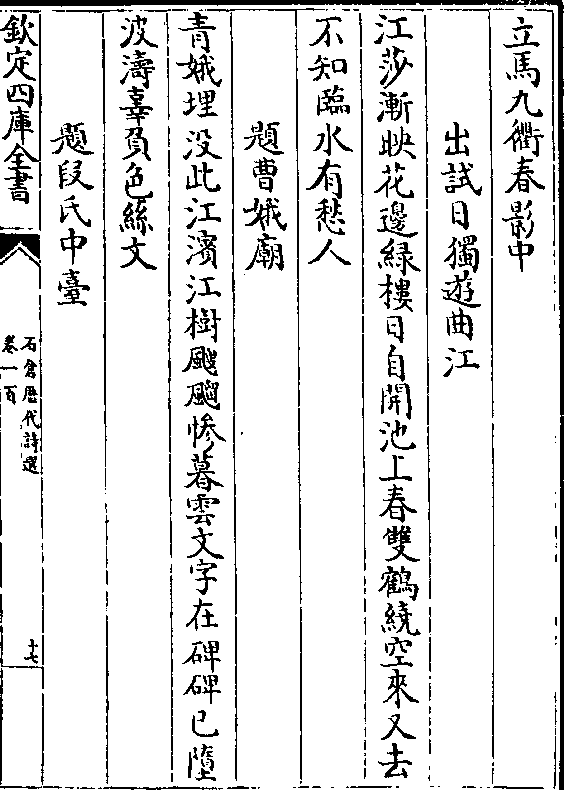 立馬九衢春影中
出試日獨遊曲江
江莎漸映花邊緑樓日自開池上春雙鶴繞空來又去
不知臨水有愁人
題曹娥廟
青娥埋没此江濱江樹颼飀慘暮雲文字在碑碑已墮
波濤辜負色絲文
題段氏中臺
欽定四庫全書
石倉厯代詩選
卷一百
十七